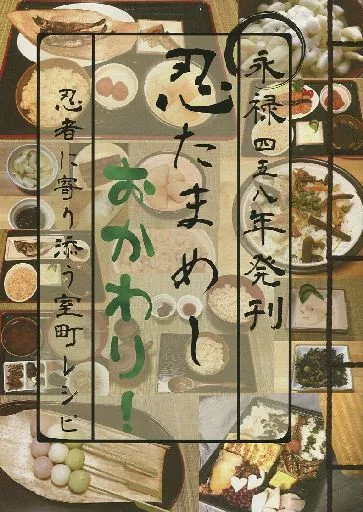 永禄四五八年発刊
忍たまめし
おかわり!
忍者に寄り添う室町レシピ